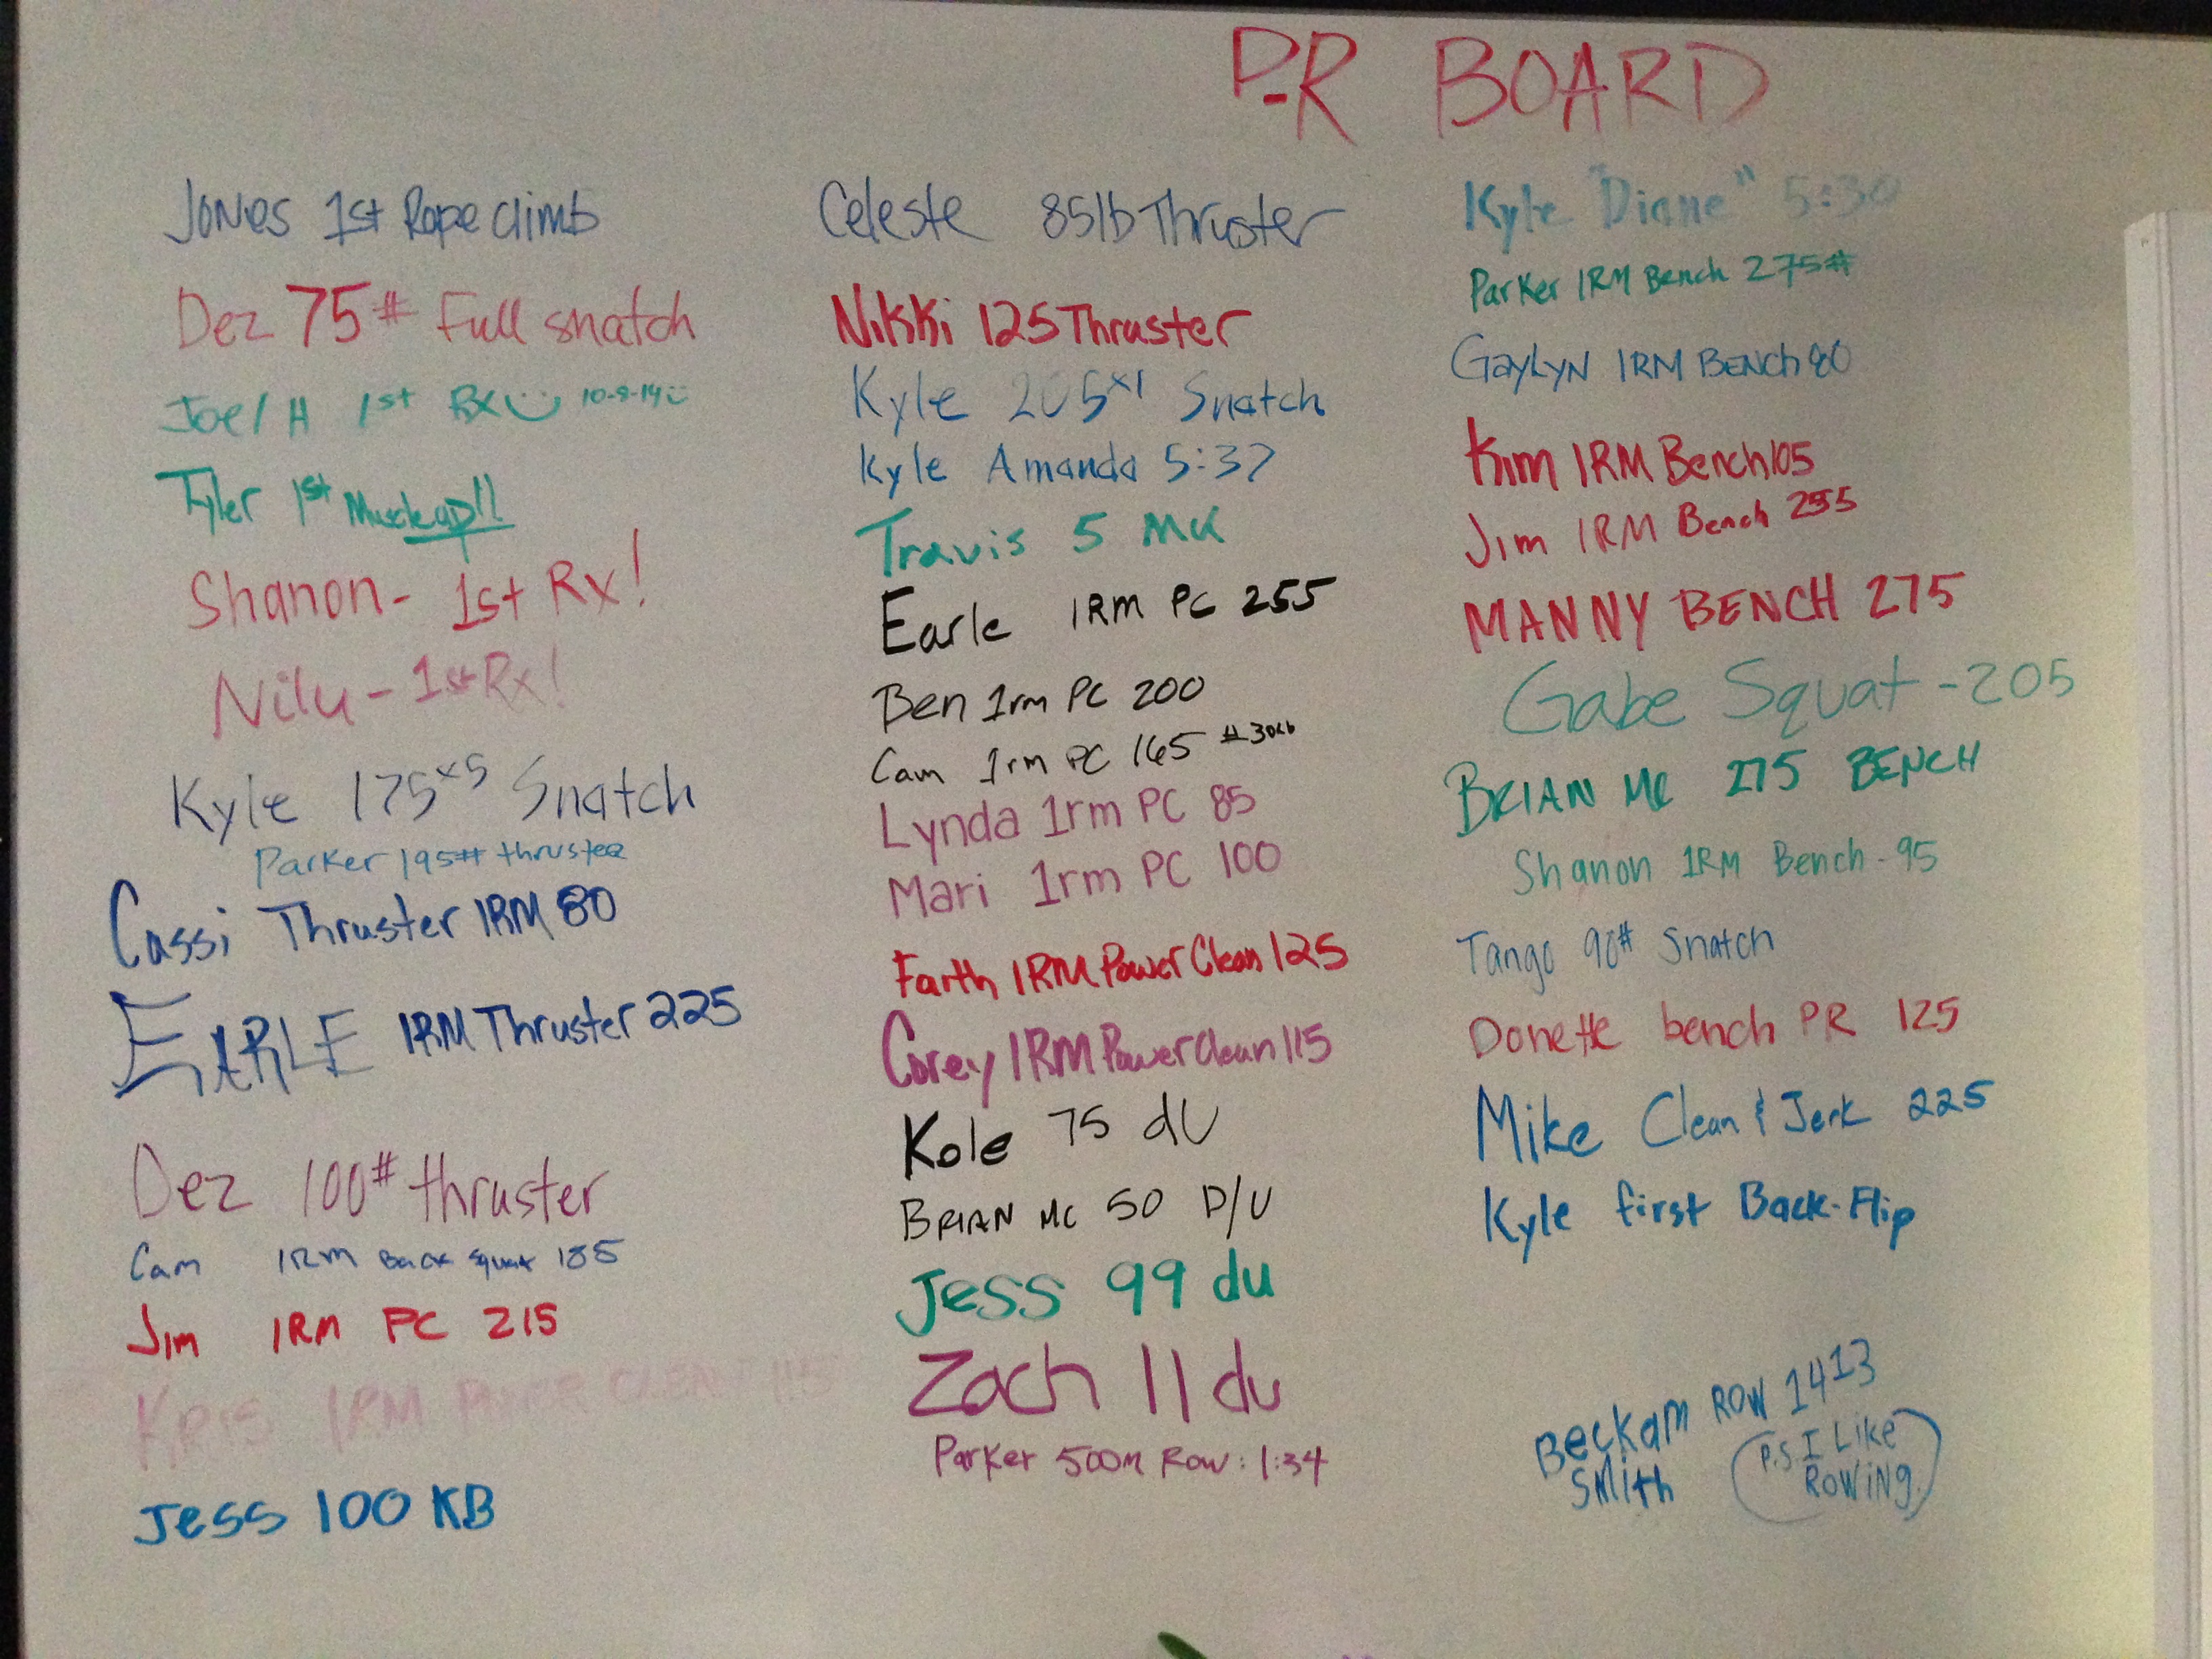 PR BOARD
Jones 1st Rope climb
Dez 75# Full snatch
Joel H 1st Rx 10-9-14
Tyler 1st Muscleup!!
Shanon- 1st Rx!
Nilu- 1st Rx!
Kyle 175x5 Snatch
Parker 195# thruster
Cassi Thruster 1RM 80
EARLE 1RM Thruster 225
Dez 100# thruster
Cam 1RM Back Squat 185
Jim 1RM PC 215
KRIS 1RM CLEAN
Jess 100 KB
Celeste 85lb Thruster
Nikki 125 Thruster
Kyle 205x1 Snatch
Kyle Amanda 5:37
Travis 5 MU
Earle 1RM PC 255
Ben 1rm PC 200
Cam 1rm PC 165 #30lb
Lynda 1rm PC 85
Mari 1rm PC 100
Farth 1RM Power Clean 125
Corey 1RM Power Clean 115
Kole 75 dU
BRIAN MC 50 D/U
Jess 99 du
Zach 11 du
Parker 500m Row: 1:34
Kyle "Diane" 5:30
Parker 1RM Bench 275#
GayLyn 1RM BENCh 80
Kim 1RM Bench 105
Jim 1RM Bench 255
MANNY BENCH 275
Gabe Squat - 205
BRIAN MC 275 BENCH
Shanon 1RM Bench - 95
Tango 90# Snatch
Donette bench PR 125
Mike Clean & Jerk 225
Kyle first Back-Flip
Beckam ROW 1413
Smith
P.S. I Like
ROWiNg.